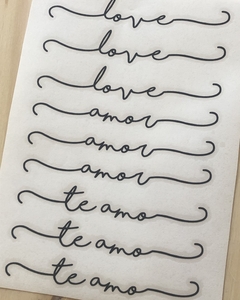 love
love
love
amor
amor
amor
te amo
te amo
te amo